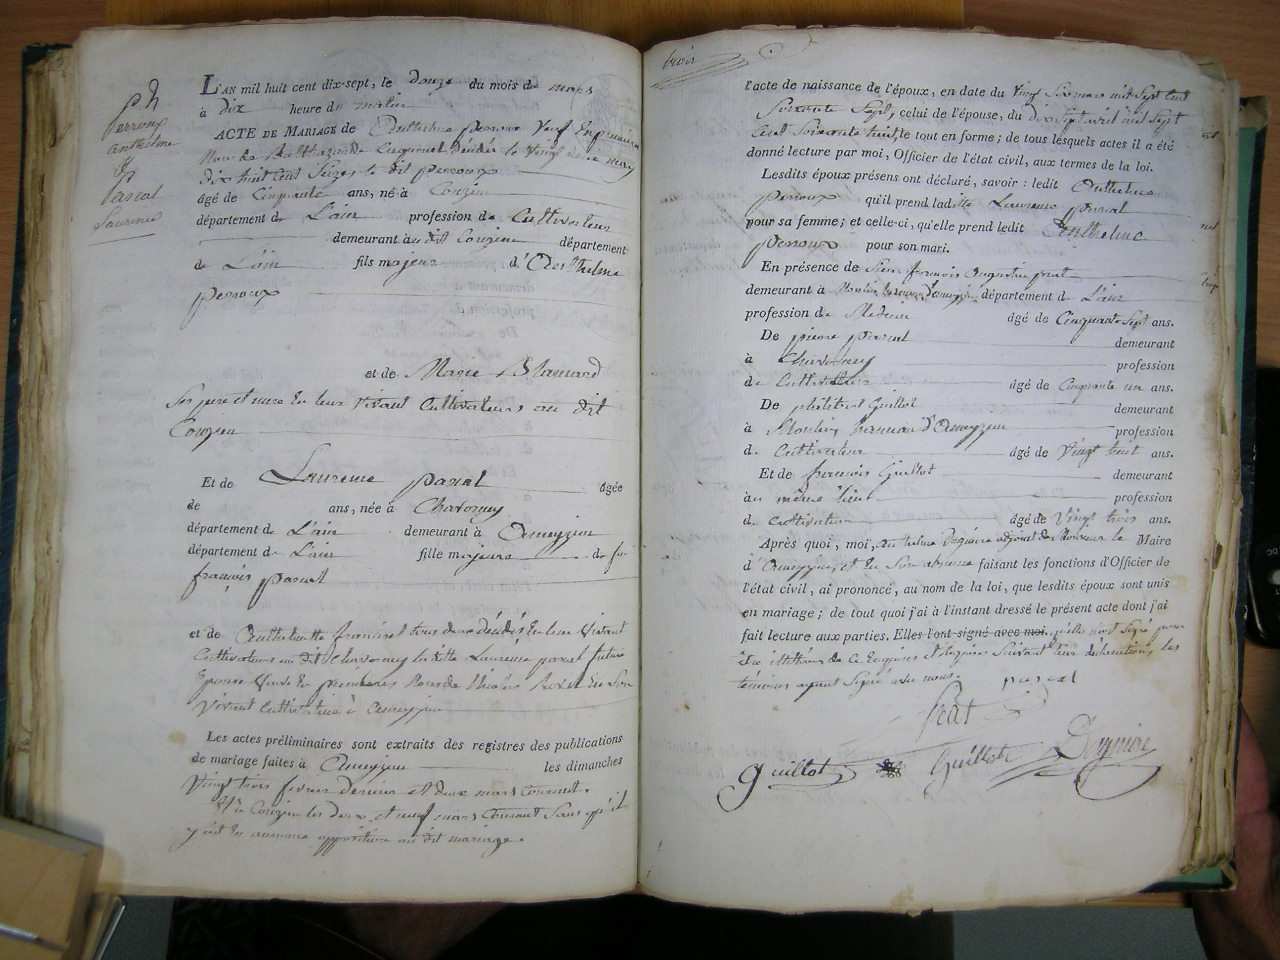 Perroux
anthelme
&
Pascal
Laurence
L'AN mil huit cent dix-sept, le douze du mois de mars
à dix heure du matin
ACTE DE MARIAGE de Anthelme perroux Veuf En premiere
Nôce de Balthazarde décédée le Vingt mars
dix huit Cent Seize le dit perroux
âgé de Cinquante ans, né à Conzieu
département de L'ain profession de Cultivateur
demeurant à au dit Conzieu département
de L'ain fils majeur d'Anthelme
perroux
et de Marie
Ses pere et mere En leur Vivant Cultivateurs au dit
Conzieu
Et de Laurence pascal âgée
de ans, née à Chavorney
département de L'ain demeurant à Ameyzieu
département de L'ain fille majeure de fu
françois pascal
et de Anthelmette tous deux décédés En leur Vivant
Cultivateurs au dit Chavorney la ditte Laurence pascal future
Epouse Veuve En premieres Nôces de En Son
Vivant Cultivateur à Ameyzieu
Les actes préliminaires sont extraits des registres des publications
de mariage faites à Ameyzieu les dimanches
Vingt trois fevrier dernier et deux mars Courant.
Et à Conzieu les deux et neuf mars Courant Sans qu'il
y ait Eu aucune opposition au dit mariage.
trois
l'acte de naissance de l'époux, en date du Vingt mil Sept Cent
Soixante Sept, celui de l'épouse, du dix Sept avril mil Sept
Cent Soixante huit, le tout en forme; de tous lesquels actes il a été
donné lecture par moi, Officier de l'état civil, aux termes de la loi.
Lesdits époux présens ont déclaré, savoir: ledit Anthelme
perroux qu'il prend ladite Laurence pascal
pour sa femme; et celle-ci, qu'elle prend ledit Anthelme
perroux pour son mari.
En présence de Sieur françois Augustin prat
demeurant à Moulin d'ameyzieu département de L'ain
profession de Medecin âgé de Cinquante Sept ans.
De pierre pascal demeurant
à Chavorney profession
de Cultivateur âgé de Cinquante un ans.
De philibert Guillot demeurant
à Moulin d'Ameyzieu profession
de Cultivateur âgé de Vingt huit ans.
Et de francois Guillot demeurant
à au même lieu profession
de Cultivateur âgé de Vingt trois ans.
Après quoi, moi, Anthelme adjoint de Monsieur le Maire
d'Ameyzieu, et En Son absence faisant les fonctions d'Officier de
l'état civil, ai prononcé, au nom de la loi, que lesdits époux sont unis
en mariage; de tout quoi j'ai à l'instant dressé le présent acte dont j'ai
fait lecture aux parties. Elles l'ont signé avec moi. Signé pour
Etre illitérés de Ce Enquises et requises Suivant leur déclaration, les
témoins ayant Signé avec nous. pascal
prat
guillot Guillot